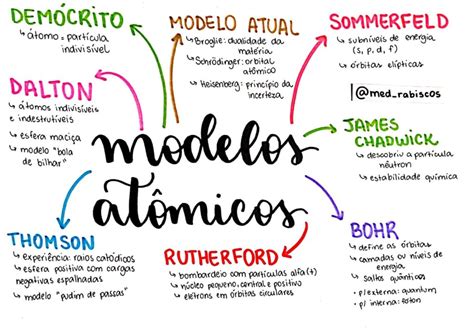 DEMÓCRITO
↳ átomo = partícula
indivisível
MODELO ATUAL
↳ Broglie: dualidade da
matéria
↳ Schrödinger: orbital
atômico
↳ Heisenberg: princípio da
incerteza
SOMMERFELD
↳ subníveis de energia
(s, p, d, f)
↳ órbitas elípticas
@med_rabiscos
DALTON
↳ átomos indivisíveis
e indestrutíveis
↳ esfera maciça
↳ modelo "bola
de bilhar"
modelos
atômicos
JAMES
CHADWICK
↳ descobriu a partícula
nêutron
↳ estabilidade química
THOMSON
↳ experiência: raios catódicos
↳ esfera positiva com cargas
negativas espalhadas
↳ modelo "pudim de passas"
RUTHERFORD
↳ bombardeio com partículas alfa(+)
↳ núcleo pequeno, central e positivo
↳ eletrons em órbitas circulares
BOHR
↳ define as órbitas
↳ camadas ou níveis de
energia
↳ saltos quânticos
p/ externa: quantum
p/ interna: fóton